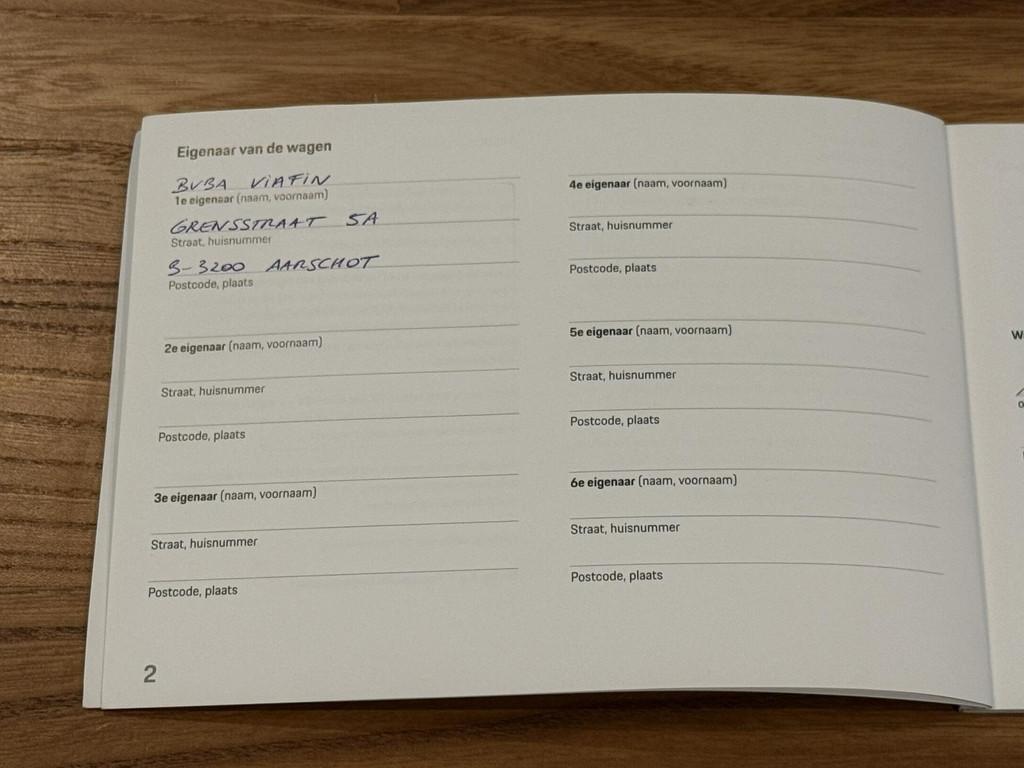 Eigenaar van de wagen
BVBA ViAFiN
1e eigenaar (naam, voornaam)
GRENSSTRAAT 5A
Straat, huisnummer
B-3200 AARSCHOT
Postcode, plaats
2e eigenaar (naam, voornaam)
Straat, huisnummer
Postcode, plaats
3e eigenaar (naam, voornaam)
Straat, huisnummer
Postcode, plaats
4e eigenaar (naam, voornaam)
Straat, huisnummer
Postcode, plaats
5e eigenaar (naam, voornaam)
Straat, huisnummer
Postcode, plaats
6e eigenaar (naam, voornaam)
Straat, huisnummer
Postcode, plaats
2